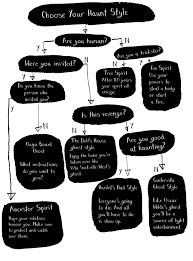 Choose Your Haunt Style
Are you human?
Y
N
Were you invited?
Are you a trickster?
Y
N
N
Y
Do you know the
person who
invited you?
Tree Spirit
After 100 years
your spirit will
emerge.
Fox Spirit
Use your
powers to
steal a body
or start
a fire.
Is this revenge?
Y
N
Y
N
Ouija Board
Ghost
What instructions
do you want to
give?
The Doll's House
ghost style
Enjoy the home you've
taken over like
Are you good
at haunting?
N
Y
Ancestor Spirit
Hope your relatives
honour you. Make sure
to protect and watch
over them.
Hamlet's Dad Style
Everyone's going
to die. And all you'll
have to do is
show up.
Canterville
Ghost Style
Like Oscar
Wilde's ghost
you'll be a
source of light
entertainment.